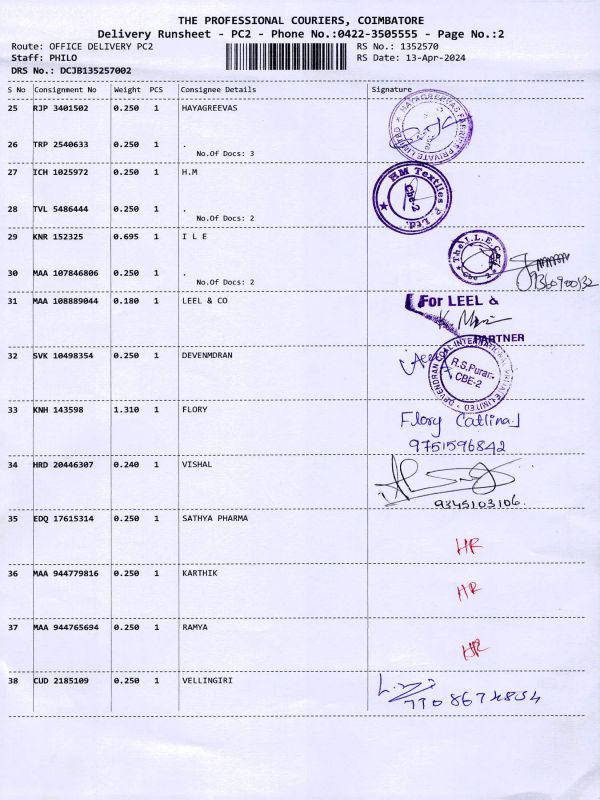 THE PROFESSIONAL COURIERS, COIMBATORE
Delivery Runsheet - PC2 - Phone No.:0422-3505555 - Page No.:2
Route: OFFICE DELIVERY PC2 RS No.: 1352570
Staff: PHILO RS Date: 13-Apr-2024
DRS No.: DCJB135257002
S No Consignment No Weight PCS Consignee Details Signature
25 RJP 3401502 0.250 1 HAYAGREEVAS
26 TRP 2540633 0.250 1 .
No.Of Docs: 3
27 ICH 1025972 0.250 1 H.M
HM Textiles P. Ltd.
Cbe-2
28 TVL 5486444 0.250 1 .
No.Of Docs: 2
29 KNR 152325 0.695 1 I L E
The I.L.E.
Cbe-2
30 MAA 107846806 0.250 1 .
No.Of Docs: 2
31 MAA 108889044 0.180 1 LEEL & CO
For LEEL &
PARTNER
32 SVK 10498354 0.250 1 DEVENMDRAN
DEVENDRAN COAL INTERNATIONAL PRIVATE LIMITED
R.S.Puram
CBE-2
33 KNH 143598 1.310 1 FLORY
Flory Catlina.J
9751596842
34 HRD 20446307 0.240 1 VISHAL
9345103106.
35 EDQ 17615314 0.250 1 SATHYA PHARMA
HR
36 MAA 944779816 0.250 1 KARTHIK
HR
37 MAA 944765694 0.250 1 RAMYA
HR
38 CUD 2185109 0.250 1 VELLINGIRI